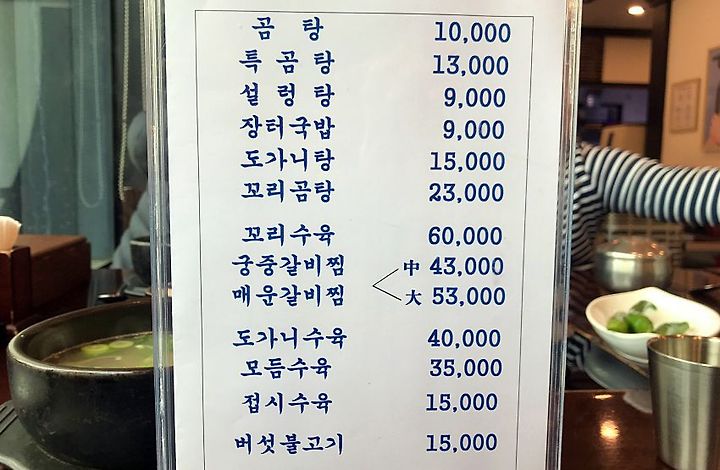 곰 탕 10,000
특 곰 탕 13,000
설 렁 탕 9,000
장터국밥 9,000
도가니탕 15,000
꼬리곰탕 23,000
꼬리수육 60,000
궁중갈비찜 中 43,000
매운갈비찜 大 53,000
도가니수육 40,000
모듬수육 35,000
접시수육 15,000
버섯불고기 15,000